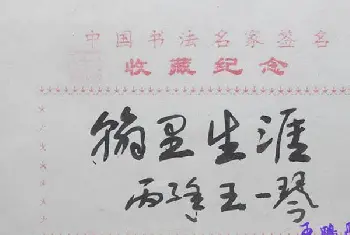 中国书法名家签名
收藏纪念
翰墨生涯
丙
王一琴